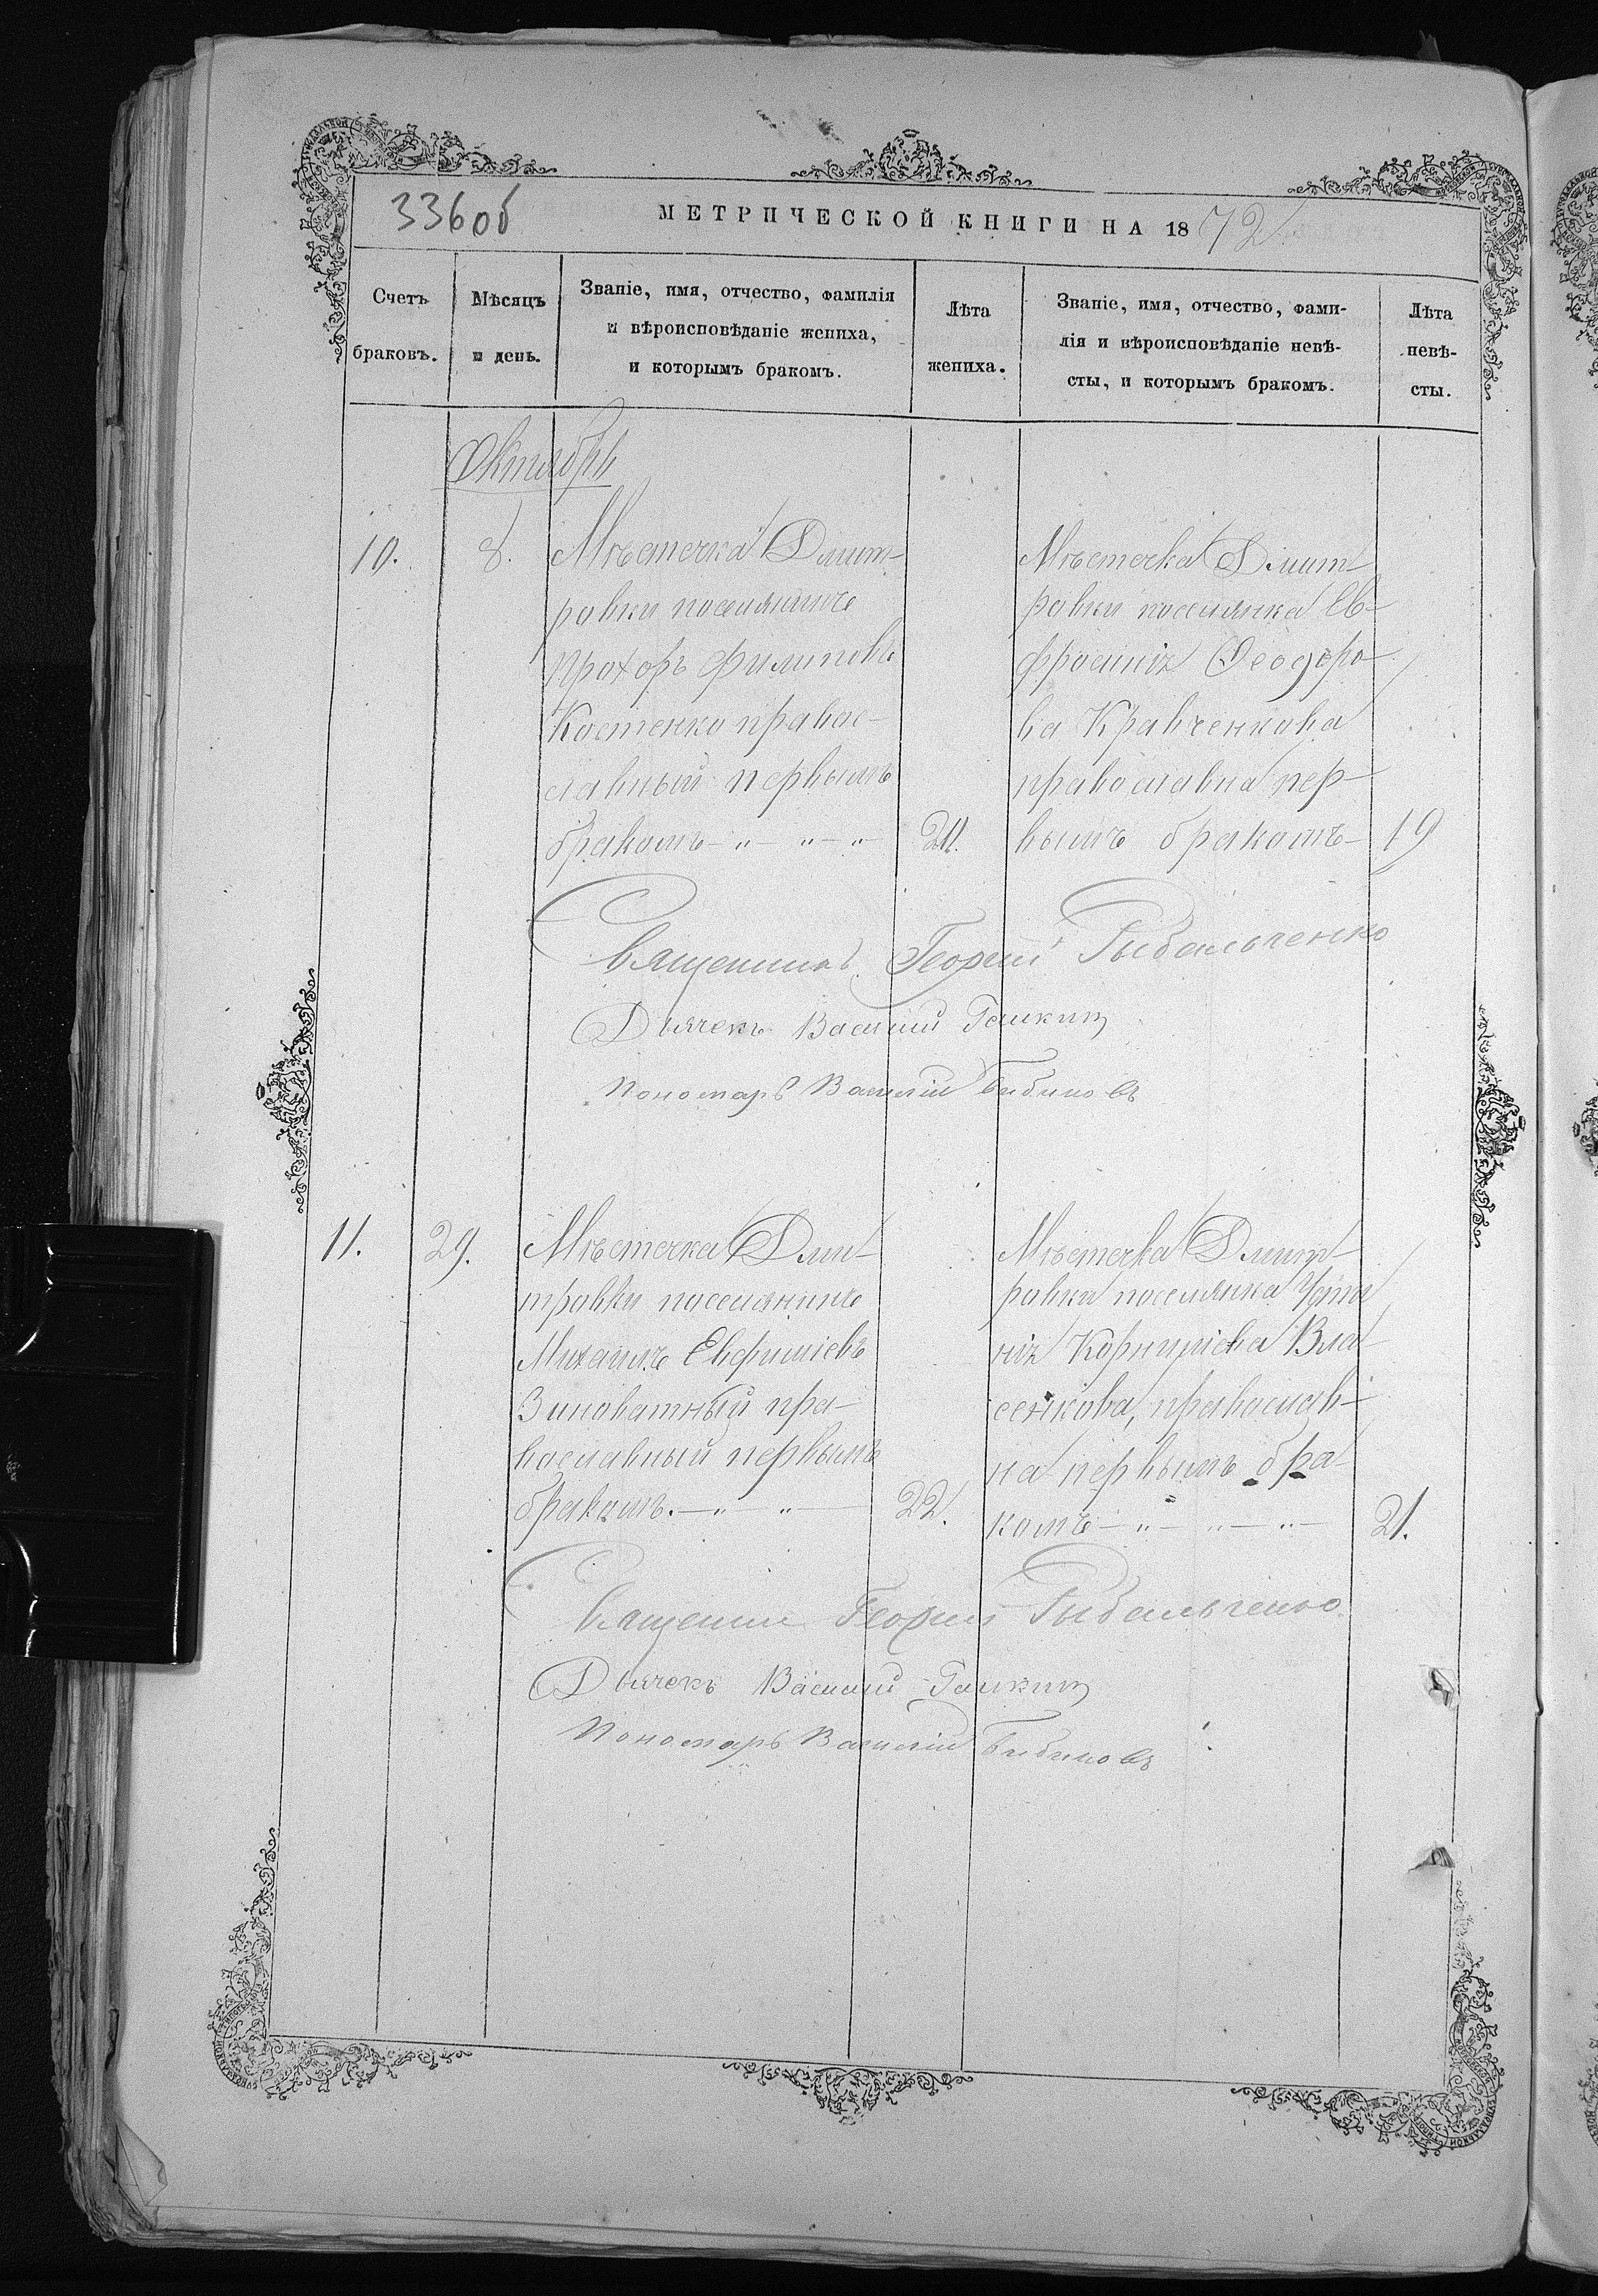 336об
МЕТРИЧЕСКОЙ КНИГИ НА 1872
Счетъ браковъ.
Мѣсяцъ и день.
Званіе, имя, отчество, фамилія
и вѣроисповѣданіе жениха,
и которымъ бракомъ.
Лѣта жениха.
Званіе, имя, отчество, фами-
лія и вѣроисповѣданіе невѣ-
сты, и которымъ бракомъ.
Лѣта невѣ-
сты.
Октябрь
10.
8.
Мѣстечка Дмит-
ровки поселянинъ
Прохоръ Филиповъ
Костенко правос-
лавный первымъ
бракомъ
Мѣстечка Дмит-
ровки поселянка Ев-
фросинія Ѳеодоро-
ва Кравченкова
православна пер-
вымъ бракомъ
19
Священникъ Георгій Рыбальченко
Дьячекъ Василій
Пономарь Василій Бибиковъ
11.
29.
Мѣстечка Дми-
тровки поселянинъ
Михаилъ Евфиміевъ
Виноватный пра-
вославный первымъ
бракомъ.
22.
Мѣстечка Дмит-
ровки поселянка Усти
нія Корниліева Вла-
сенкова, православ-
на первымъ бра-
комъ
21.
Священник Георгій Рыбальченко
Дьячекъ Василій
Пономарь Василій Бибиковъ